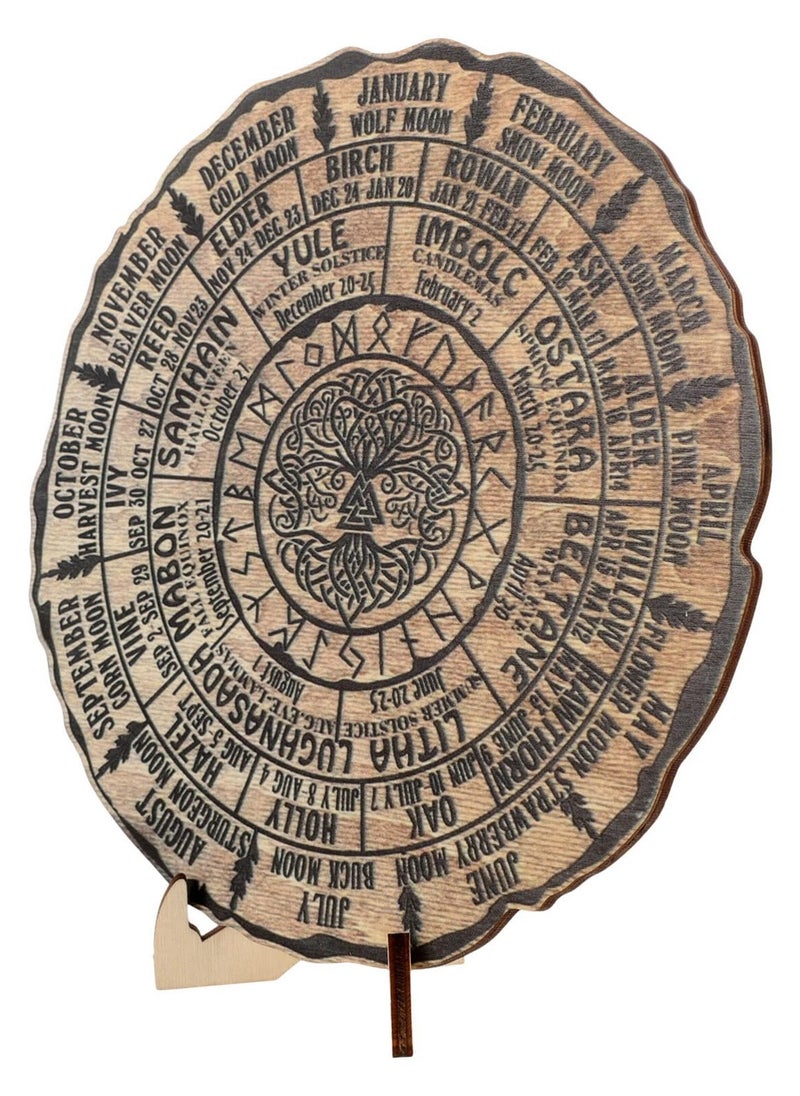 JANUARY
WOLF MOON
FEBRUARY
SNOW MOON
MARCH
WORM MOON
APRIL
PINK MOON
MAY
FLOWER MOON
JUNE
STRAWBERRY MOON
JULY
BUCK MOON
AUGUST
STURGEON MOON
SEPTEMBER
CORN MOON
OCTOBER
HARVEST MOON
NOVEMBER
BEAVER MOON
DECEMBER
COLD MOON
BIRCH
DEC 24-JAN 20
ROWAN
JAN 21-FEB 17
ASH
FEB 18 MAR 17
ALDER
MAR 18 APR 14
WILLOW
APR 15 MAY 12
HAWTHORN
MAY 13 JUNE 9
OAK
JUN 10-JULY 7
HOLLY
JULY 8-AUG 4
HAZEL
AUG 5 SEP 1
VINE
SEP 2 SEP 29
IVY
SEP 30 OCT 27
REED
OCT 28 NOV23
ELDER
NOV 24-DEC 23
YULE
WINTER SOLSTICE
December 20-25
IMBOLC
CANDLEMAS
February 2
OSTARA
SPRING EQUINOX
March 20-25
BELTANE
April
LITHA
SUMMER SOLSTICE
June 20-25
LUGHNASADA
AUG. EVE-LAMMAS
August 1
MABON
FALL EQUINOX
September 20-21
SAMHAIN
HALLOWEEN
October